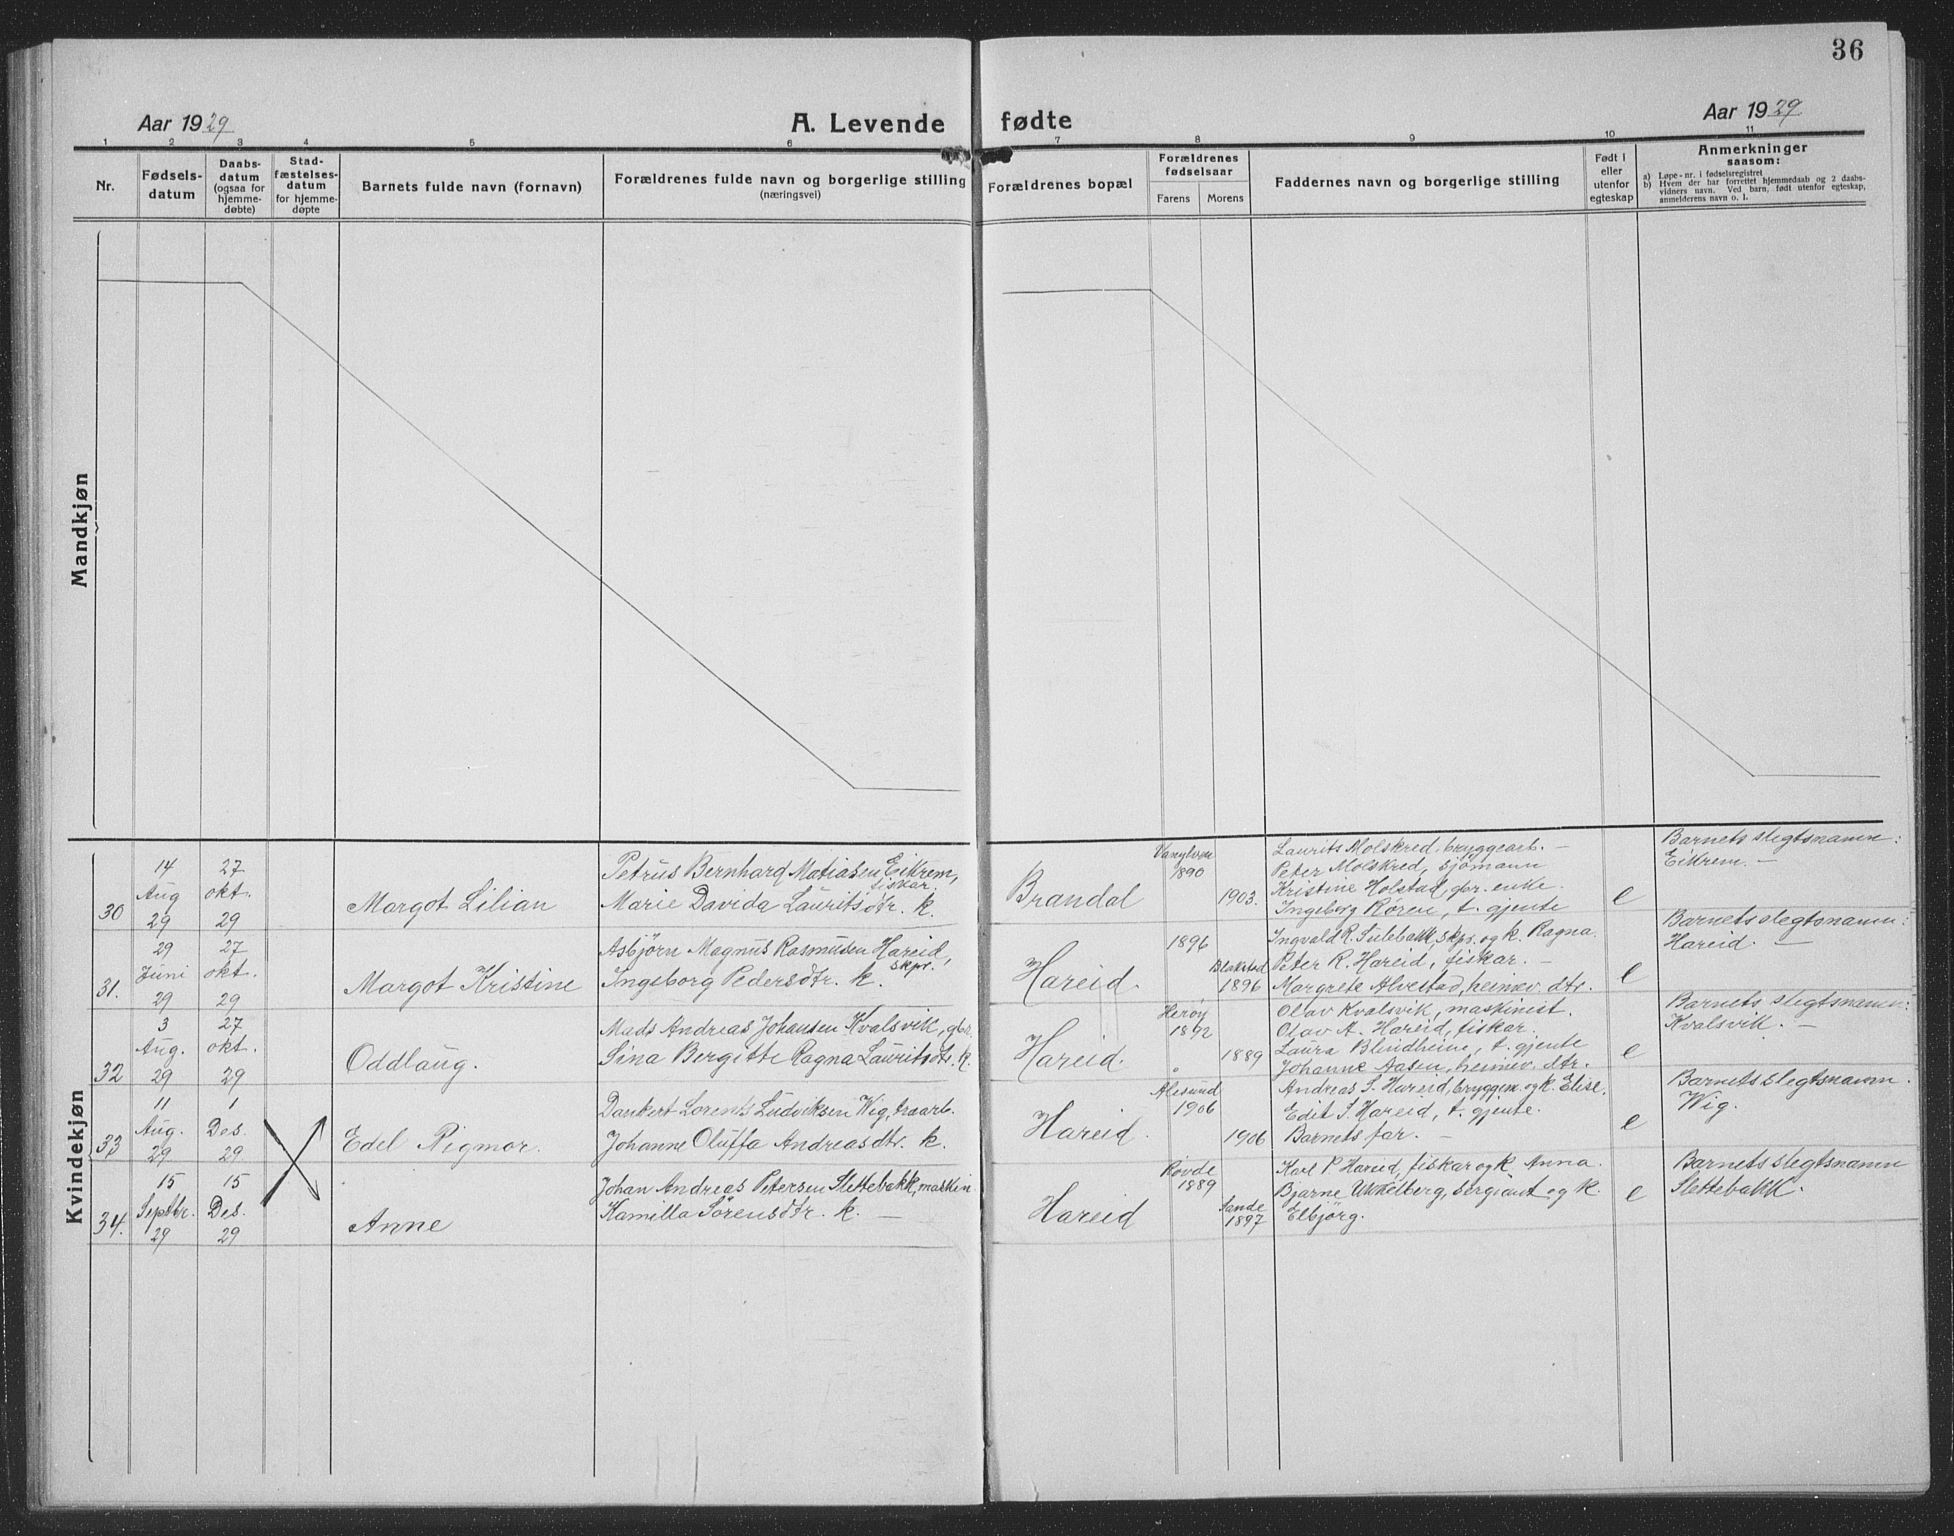 36
Aar 1929
A. Levende fødte
Aar 1929
1 2 3 4 5 6 7 8 9 10 11
Nr.
Fødsels-
datum
Daabs-
datum
(ogsaa for
hjemme-
døbte)
Stad-
fæstelses-
datum
for hjemme-
døpte
Barnets fulde navn (fornavn)
Forældrenes fulde navn og borgerlige stilling
(næringsvei)
Forældrenes bopæl
Forældrenes
fødselsaar
Farens Morens
Faddernes navn og borgerlige stilling
Født i
eller
utenfor
egteskap
Anmerkninger
saasom:
a) Løpe-nr. i fødselsregistret
b) Hvem der har forrettet hjemmedaab og 2 daabs-
vidners navn. Ved barn, født utenfor egteskap,
anmelderens navn o. l.
Mandkjøn
Kvindekjøn
30
14
Aug
29
27
okt.
29
Margot Lilian
Petrus Bernhard Matiasen Eikrem,
fiskar.
Marie Davida Lauritsdtr. k.
Brandal
Vanylven
1890
1903.
Laurits Molskred, bryggearb. –
Peter Molskred, sjömann
Kristine Holstad, gbr. enke.
Ingeborg Rören, t. gjente
e
Barnets slegtsnamn:
Eikrem. –
31.
29
Juni
29
27
okt.
29
Margot Kristine
Asbjörn Magnus Rasmusen Hareid,
skpr.
Ingeborg Pedersdtr. k.
Hareid.
1896
Blakstad
1896
Ingvald R. Sulebakk, skpr. og k. Ragna.
Peter R. Hareid, fiskar. –
Margrete Alvestad, heimev. dtr.
e
Barnets slegtsnamn:
Hareid. –
32
3
Aug.
29
27
okt.
29
Oddlaug.
Mads Andreas Johansen Kvalsvik, gbr.
Sina Bergitte Ragna Lauritsdtr. k.
Hareid.
Herøy
1892
1889
Olav Kvalsvik, maskinist.
Olav A. Hareid, fiskar.
Laura Blindheim, t. gjente
Johanne Aasen, heimev. dtr.
e
Barnets slegtsnamn:
Kvalsvik. –
33
11
Aug.
29
1
Des.
29
Edel Rigmor.
Dankert Lorents Ludviksen Wig, traarb.
Johanne Oluffa Andreasdtr. k.
Hareid.
Alesund
1906
1906
Andreas S. Hareid, bryggem. og k. Elise.
Edit S. Hareid, t. gjente.
Barnets far. –
e
Barnets slegtsnamn.
Wig.
34.
15
Septbr.
29
15
Des.
29
Anne
Johan Andreas Petersen Slettebakk, maskin.
Kamilla Sörensdtr. k. –
Hareid
Rovde
1889
Sande
1897
Karl P. Hareid, fiskar og k. Anna.
Bjarne Ukkelberg, sergiant og k.
Elbjörg.
e
Barnets slegtsnamn
Slettebakk.